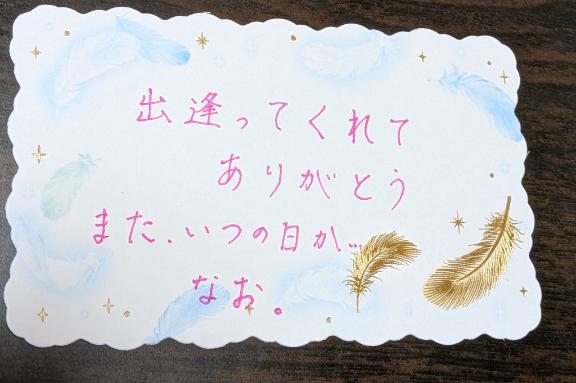 出逢ってくれて
ありがとう
また、いつの日か…
なお。